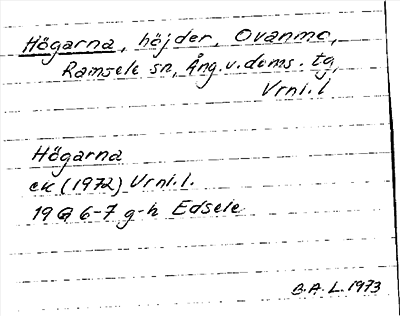 Högarna, höjder, Ovanmo,
Ramsele sn, Ång.v.doms. tg,
Vrni.l
Högarna
ek (1972) Vrni.l.
19G 6-7 g-h Edsele
B.A.L. 1973